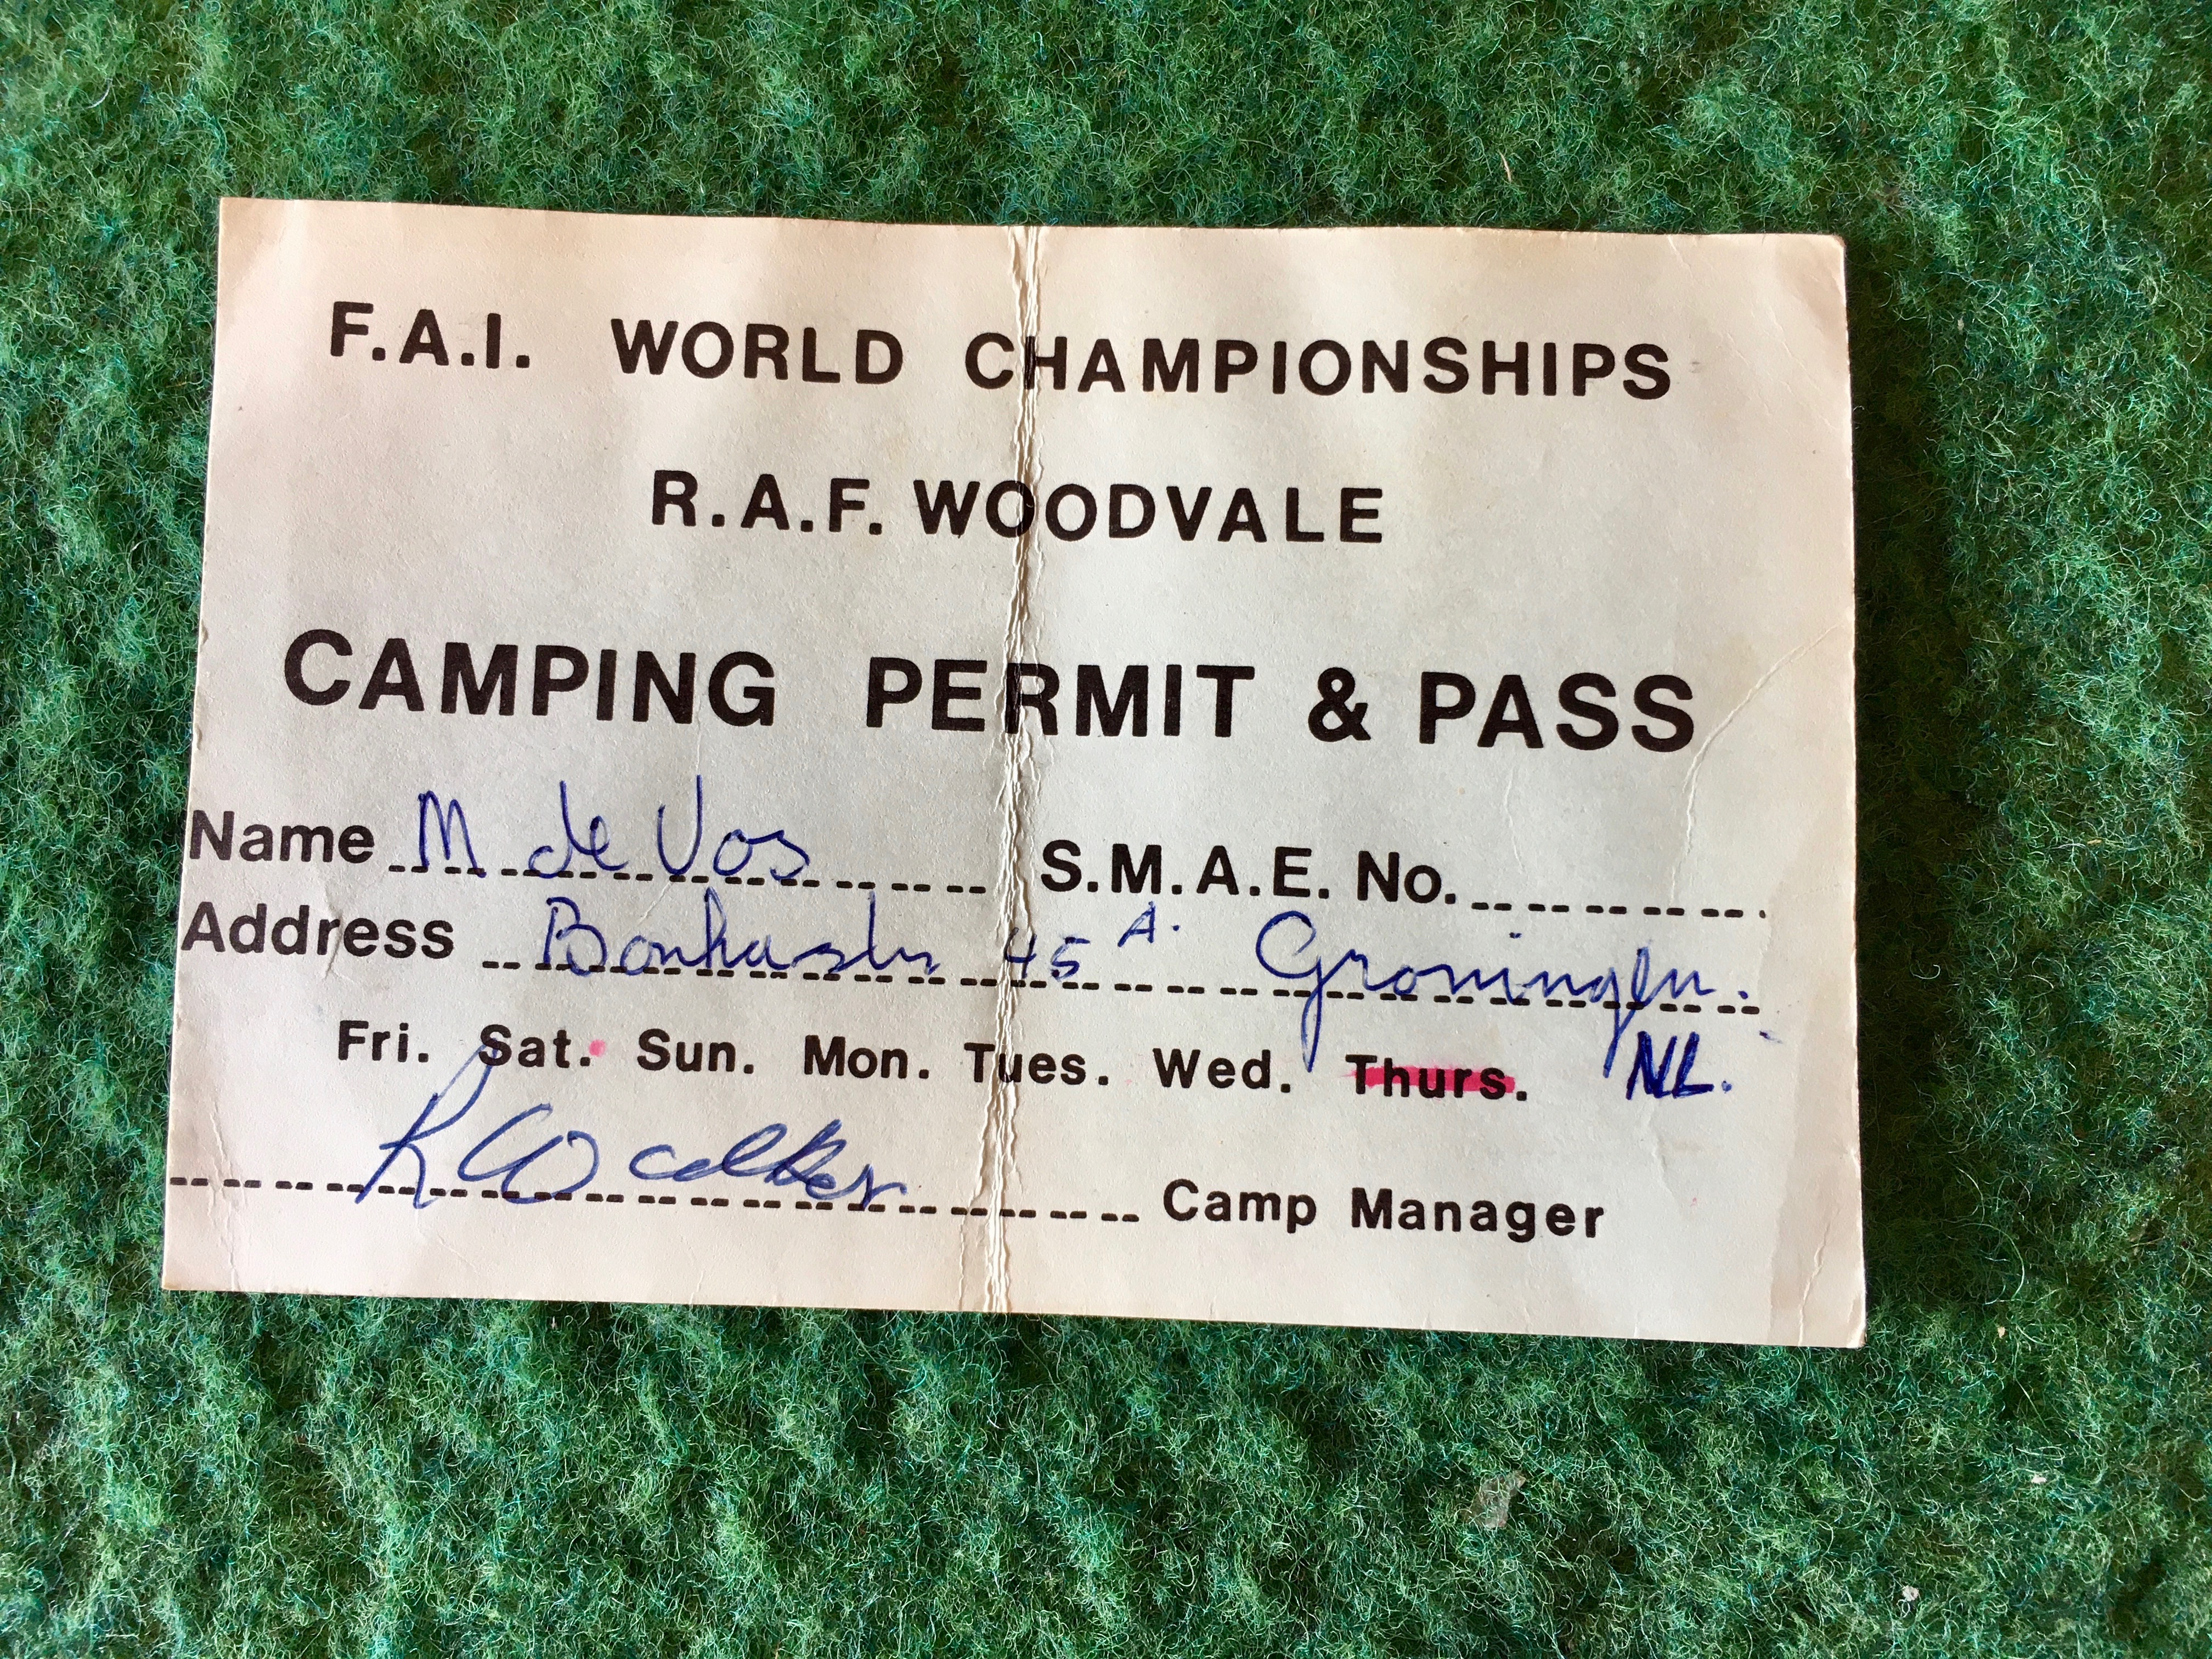 F.A.I. WORLD CHAMPIONSHIPS
R.A.F. WOODVALE
CAMPING PERMIT & PASS
Name M de Vos S.M.A.E. No.
Address 45 A. Groningen.
Fri. Sat. Sun. Mon. Tues. Wed. Thurs. NL.
R Walker Camp Manager